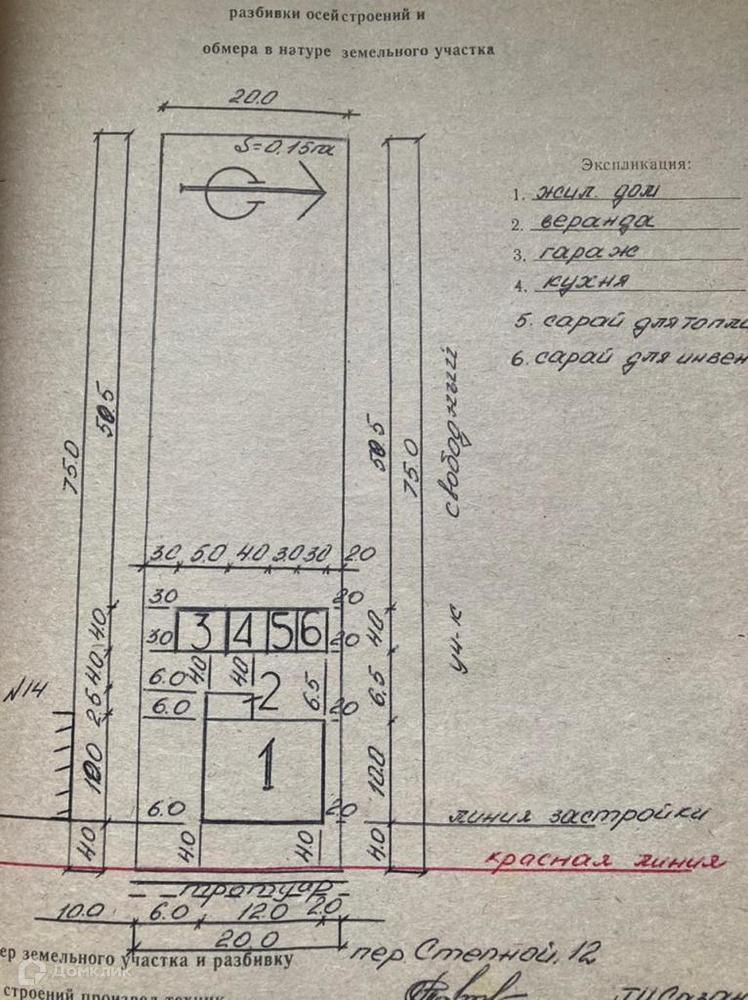 разбивки осей строений и
обмера в натуре земельного участка
20.0
S=0.15га
Экспликация:
1. жил. дом
2. веранда
3. гараж
4. кухня
5. сарай для топли
6. сарай для инвен
75.0
50.5
50.5
75.0
свободный
уч-к
3.0 5.0 4.0 3.0 3.0 2.0
3.0 2.0
3.0 3 4 5 6 2.0
4.0 4.0
4.0 4.0 4.0
6.0 2 6.5 6.5
N14
2.5
6.0 2.0
10.0 1 10.0
6.0 2.0
линия застройки
4.0 4.0 4.0 4.0
красная линия
тротуар
10.0 6.0 12.0 2.0
20.0
ер земельного участка и разбивку пер. Степной, 12
строений произвел техник
Домклик